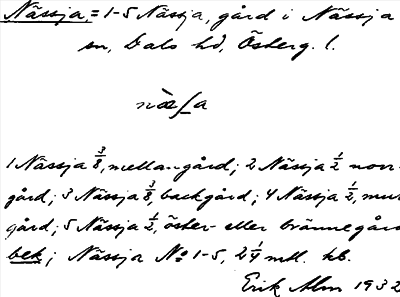 Nässja = 1-5 Nässja, gård i Nässja
sn, Dals hd, Österg. l.
näs∫a
1 Nässja 3/8, mellangård; 2 Nässja 1/2 norr-
gård; 3 Nässja 3/8, backgård; 4 Nässja 1/2, mur
gård; 5 Nässja 1/2, öster- eller brännegård
bek; Nässja No 1-5, 2 1/4 mtl. kb.
Erik Alm 1932